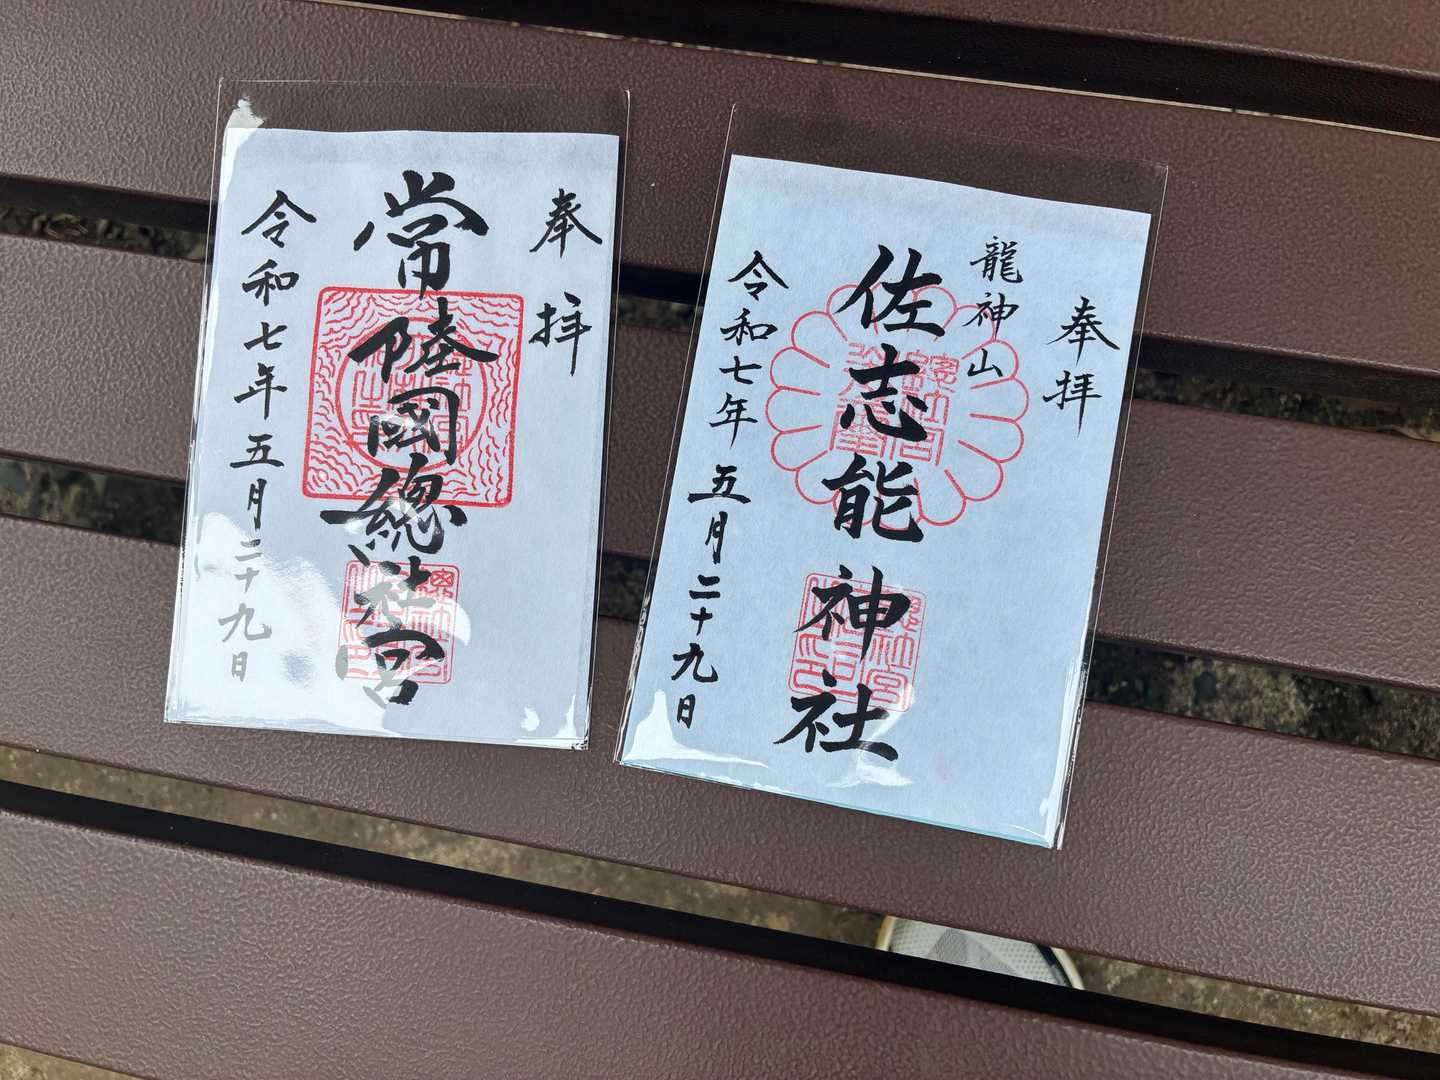 奉拝
常陸國總社宮
令和七年五月二十九日
奉拝
龍神山
佐志能神社
令和七年五月二十九日